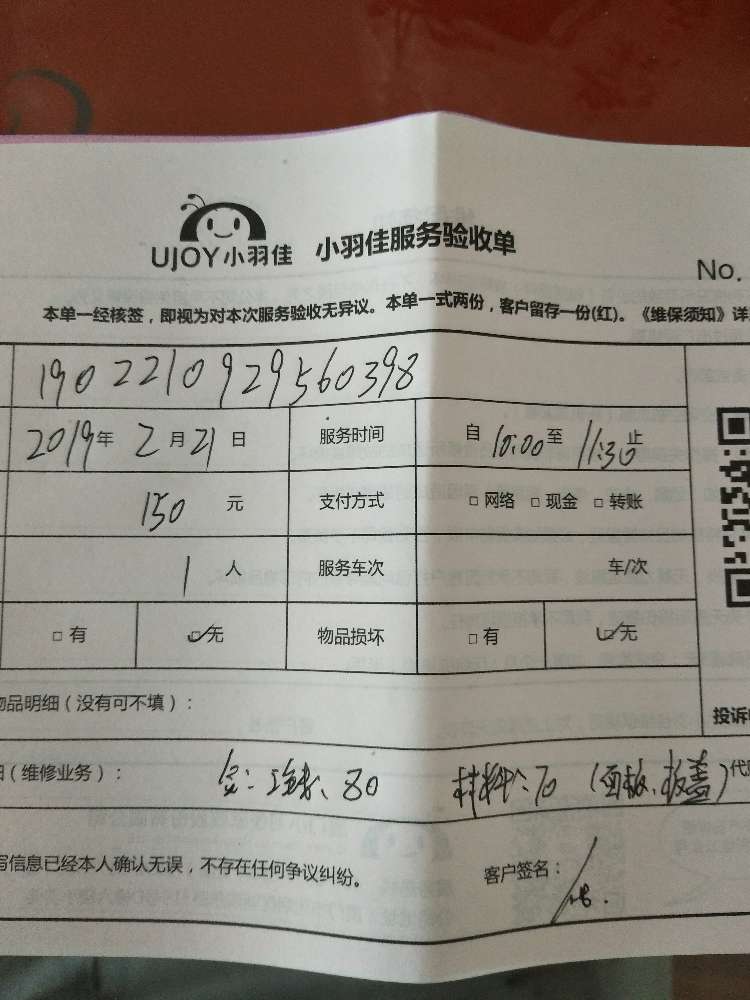 UJOY小羽佳 小羽佳服务验收单
No.
本单一经核签，即视为对本次服务验收无异议。本单一式两份，客户留存一份(红)。《维保须知》详
1902210929560398
2019年 2月21日 服务时间 自10:00至11:30止
150元 支付方式 □网络 □现金 □转账
1人 服务车次 车/次
□有 □无 物品损坏 □有 □无
物品明细（没有可不填）：
投诉
（维修业务）： 80 材料：70（面板、板盖）代
写信息已经本人确认无误，不存在任何争议纠纷。 客户签名：